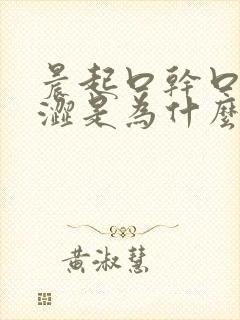 晨起口幹口
澀是為什麼
黃淑慧